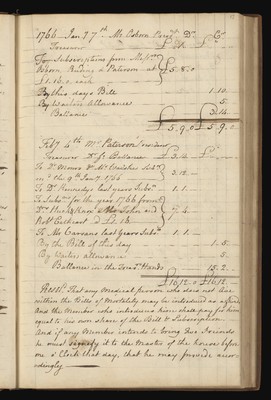 1766 Jan.y 7th Mr. Osborn Presid.t Dr. Cr.
Treasurer £ £
To Subscriptions from Mess.rs
Osborn, & Paterson at £5.8.0
£1.16.0 each
By this days Bill 1.10.
By Waiters Allowance 5.
Ballance 3.14.
£5.9.0 £5.9.0
Feb.y 4th Mr. Paterson President
Treasurer Dr. to Ballance £3.14 £
To Dr. & Mr. Sub.n
in the 9th Jan.y 1766 3.12.
To Dr. Kennedys last years Subs.n 1.1.
To Subs.n for the year 1766 from
Drs. Huck, & John and 7.4.
Rob.t at £2.16
To Mr. last years Subs.n 1.1.
By the Bill of this day 1.5.
By Waiters allowance 5.
Ballance in the Treas.rs Hands 15.2.
£16.12.0 £16.12.
Resol.d That any Medical person who does not live
within the Bills of Mortality may be introduced as a friend
And the Member who introduces him shall pay for him
equal to his own share of the Bill & Subscription
And if any Member intends to bring two Friends
he must signify it to the Master of the house before
on o'Clock that day, that he may provide accor-
dingly